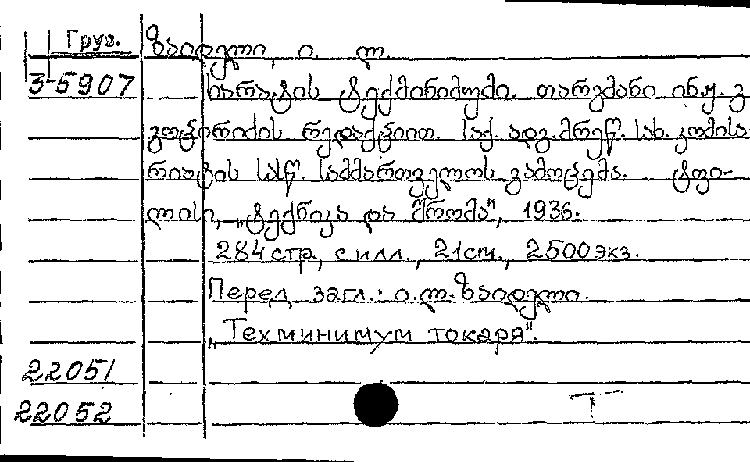 Груз. ზაიდელი, ი. ლ.
3-5907 ხარატის ტექმინიმუმი. თარგმანი ინ.ჟ. გ.
გოჭორიძის რედაქციით. საქ. ადგ. მრეწ. სახ. კომისა
რიატის საწ. სამმართველოს გამოცემა. ტფი-
ლისი, „ტექნიკა და შრომა", 1936.
284 стр., с илл., 21 см., 2500 экз.
Перед загл.: ი.ლ. ზაიდელი.
„Техминимум токаря".
22051
22052
Т